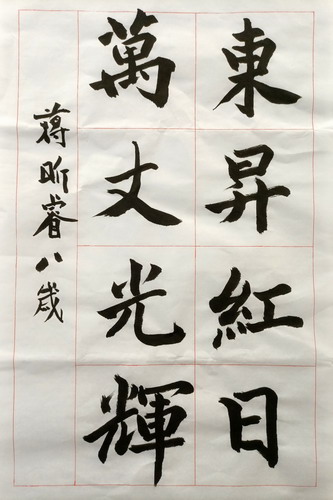 東昇紅日
萬丈光輝
蔣昕睿八歲